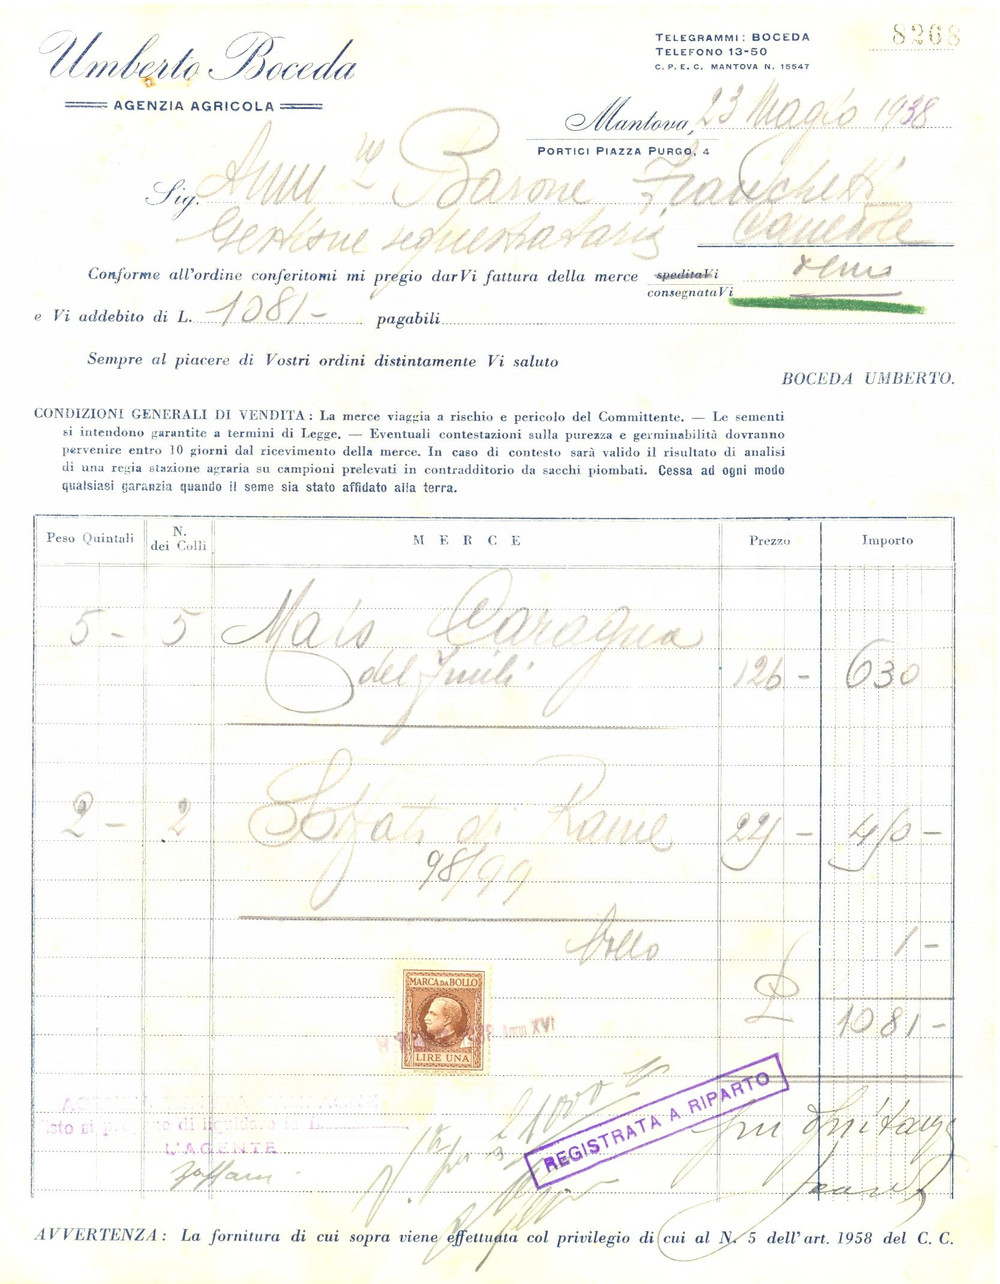 Umberto Boceda
AGENZIA AGRICOLA
TELEGRAMMI: BOCEDA
TELEFONO 13-50
C. P. E. C. MANTOVA N. 15547
8268
Mantova, 23 Maggio 1938
PORTICI PIAZZA PURGO, 4
Sig. Barone Franchetti
Gestione sequestrataria Canedole
Conforme all'ordine conferitomi mi pregio darVi fattura della merce speditaVi
consegnataVi
e Vi addebito di L. 1081- pagabili
Sempre al piacere di Vostri ordini distintamente Vi saluto
BOCEDA UMBERTO.
CONDIZIONI GENERALI DI VENDITA: La merce viaggia a rischio e pericolo del Committente. — Le sementi
si intendono garantite a termini di Legge. — Eventuali contestazioni sulla purezza e germinabilità dovranno
pervenire entro 10 giorni dal ricevimento della merce. In caso di contesto sarà valido il risultato di analisi
di una regia stazione agraria su campioni prelevati in contradditorio da sacchi piombati. Cessa ad ogni modo
qualsiasi garanzia quando il seme sia stato affidato alla terra.
Peso Quintali N. dei Colli MERCE Prezzo Importo
5 - 5 Mais Caragua
del 126 - 630
2 - 2 Solfato di Rame 225 - 450 -
98/99
bollo 1 -
£ 1081 -
MARCA DA BOLLO
LIRE UNA
Anno XVI
REGISTRATA A RIPARTO
L'AGENTE
AVVERTENZA: La fornitura di cui sopra viene effettuata col privilegio di cui al N. 5 dell'art. 1958 del C. C.